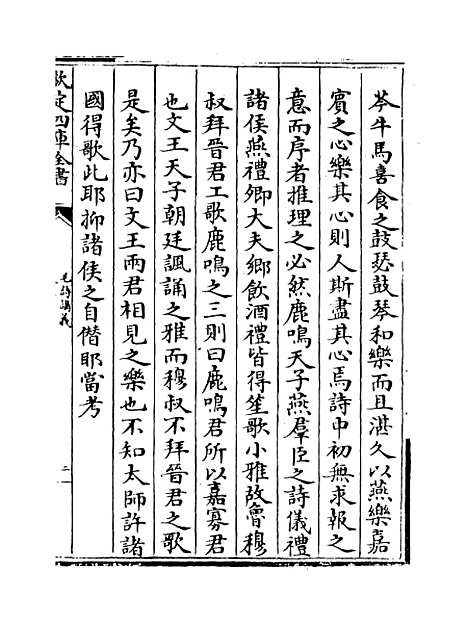 芩牛馬喜食之鼓瑟鼓琴和樂而且湛久以燕樂嘉
賓之心樂其心則人斯盡其心焉詩中初無求報之
意而序者推理之必然鹿鳴天子燕羣臣之詩儀禮
諸侯燕禮鄉大夫鄉飲酒禮皆得笙歌小雅故魯穆
叔拜晉君工歌鹿鳴之三則曰鹿鳴君所以嘉寡君
也文王天子朝廷諷誦之雅而穆叔不拜晉君之歌
是矣乃亦曰文王兩君相見之樂也不知太師許諸
國得歌此耶抑諸侯之自僭耶當考
欽定四庫全書
毛詩講義